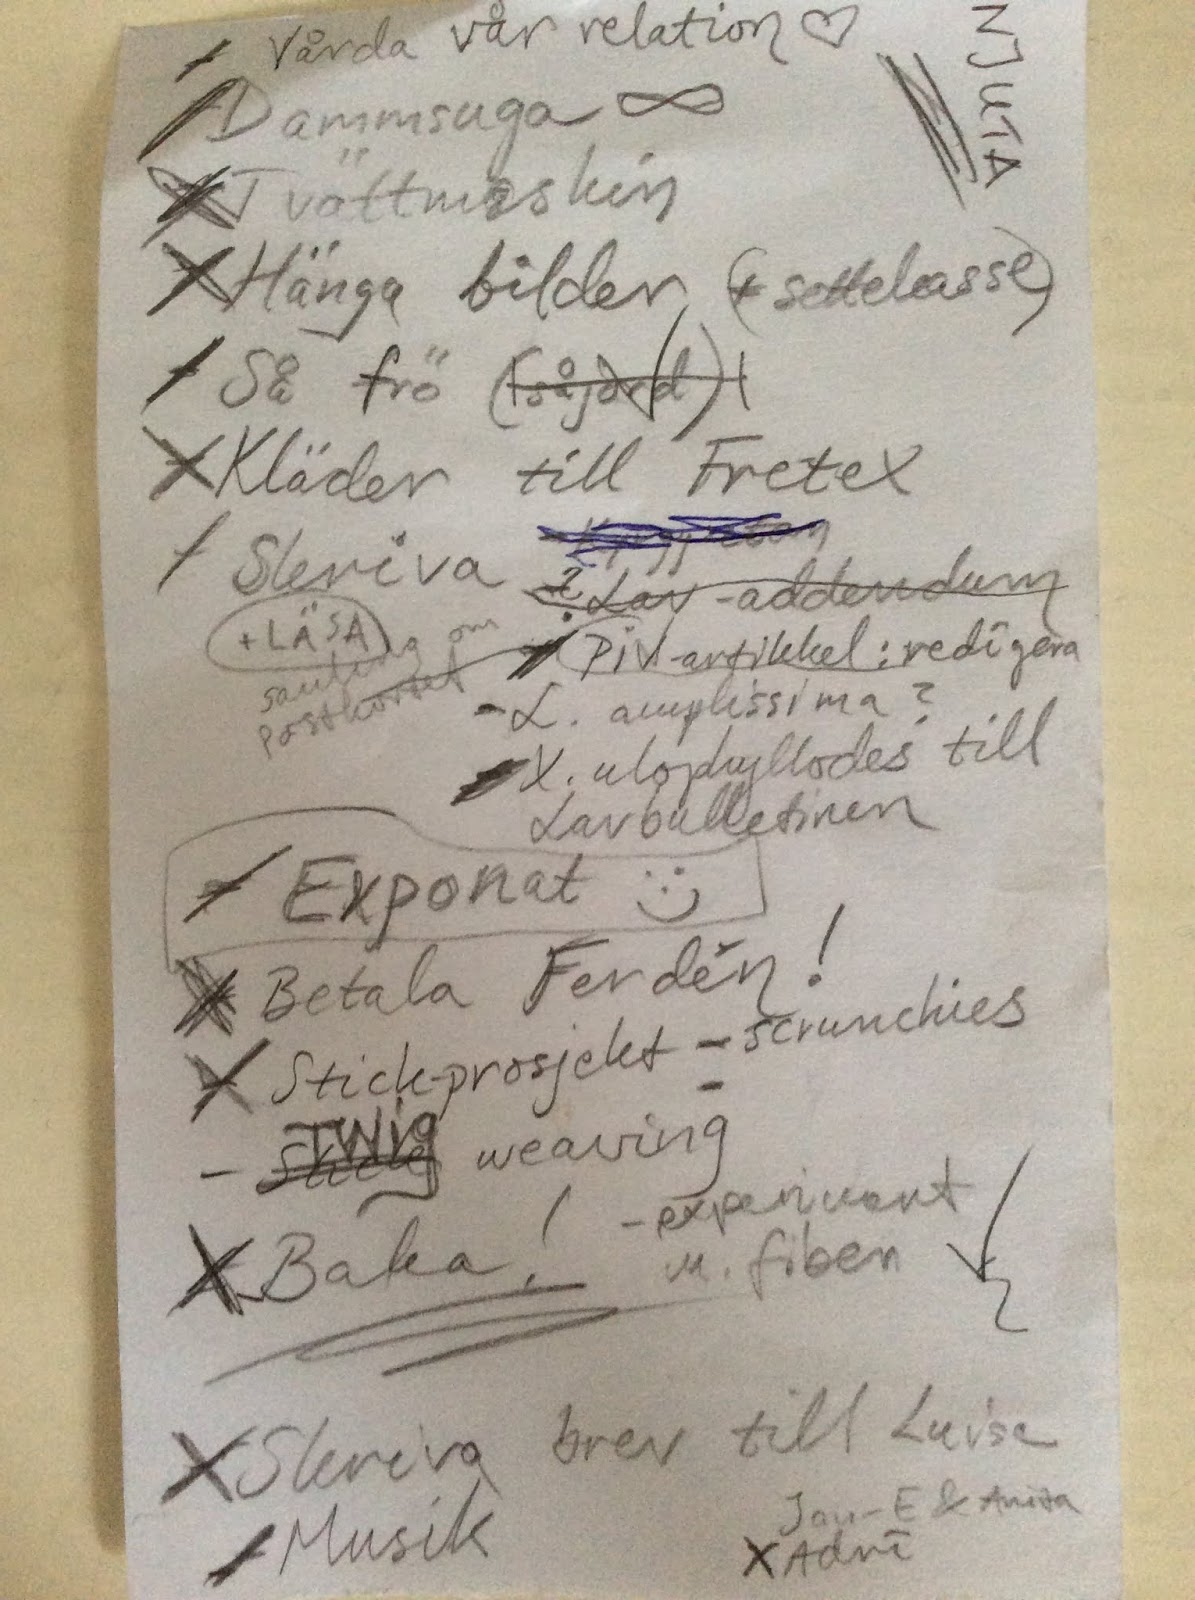 Vårda vår relation ♡
NJUTA
Dammsuga ∞
Tvättmaskin
Hänga bilder (+ settekasse)
Så frö (+såjord)
Kläder till Fretex
Skriva
? Lav-addendum
+LÄSA
samling om
postkortet
PiV-artikkel: redigera
- L. amplissima?
X. ulophyllodes till
Lavbulletinen
Exponat :)
Betala Ferdén!
Stick-prosjekt - scrunchies
-
- Twig weaving
Baka! - experiment
m. fiber
Skriva brev till Luise
Jan-E & Anita
Musik
X Adri